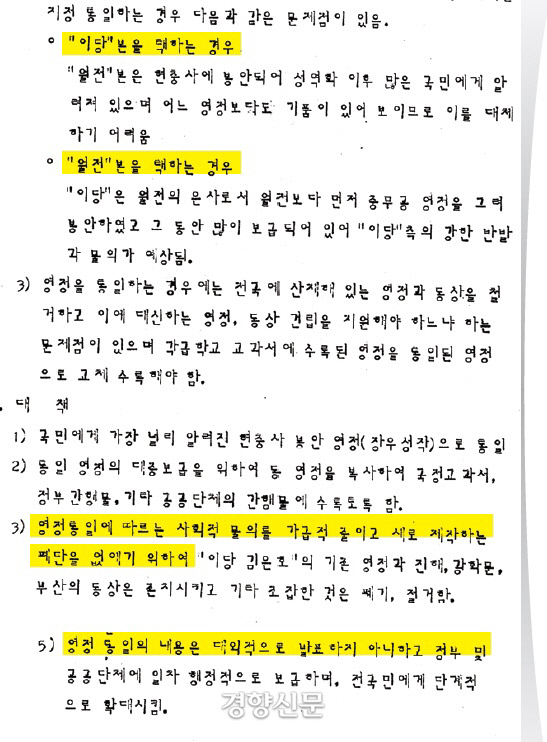 지정 통일하는 경우 다음과 같은 문제점이 있음.
o "이당"본을 택하는 경우
"월전"본은 현충사에 봉안되어 성역화 이후 많은 국민에게 알
려져 있으며 어느 영정보다도 기품이 있어 보이므로 이를 대체
하기 어려움
o "월전"본을 택하는 경우
"이당"은 월전의 은사로서 월전보다 먼저 충무공 영정을 그려
봉안하였고 그 동안 많이 보급되어 있어 "이당"측의 강한 반발
과 물의가 예상됨.
3) 영정을 통일하는 경우에는 전국에 산재해 있는 영정과 동상을 철
거하고 이에 대신하는 영정, 동상 건립을 지원해야 하느냐 하는
문제점이 있으며 각급학교 교과서에 수록된 영정을 통일된 영정
으로 교체 수록해야 함.
. 대 책
1) 국민에게 가장 널리 알려진 현충사 봉안 영정(장우성작)으로 통일
2) 통일 영정의 대중보급을 위하여 동 영정을 복사하여 국정교과서,
정부간행물, 기타 공공단체의 간행물에 수록토록 함.
3) 영정통일에 따르는 사회적 물의를 가급적 줄이고 새로 제작하는
폐단을 없애기 위하여 "이당 김은호"의 기존 영정과 진해, 광화문,
부산의 동상은 존치시키고 기타 조잡한 것은 폐기, 철거함.
5) 영정 통일의 내용은 대외적으로 발표하지 아니하고 정부 및
공공단체에 일차 행정적으로 보급하며, 전국민에게 단계적
으로 확대시킴.
경향신문